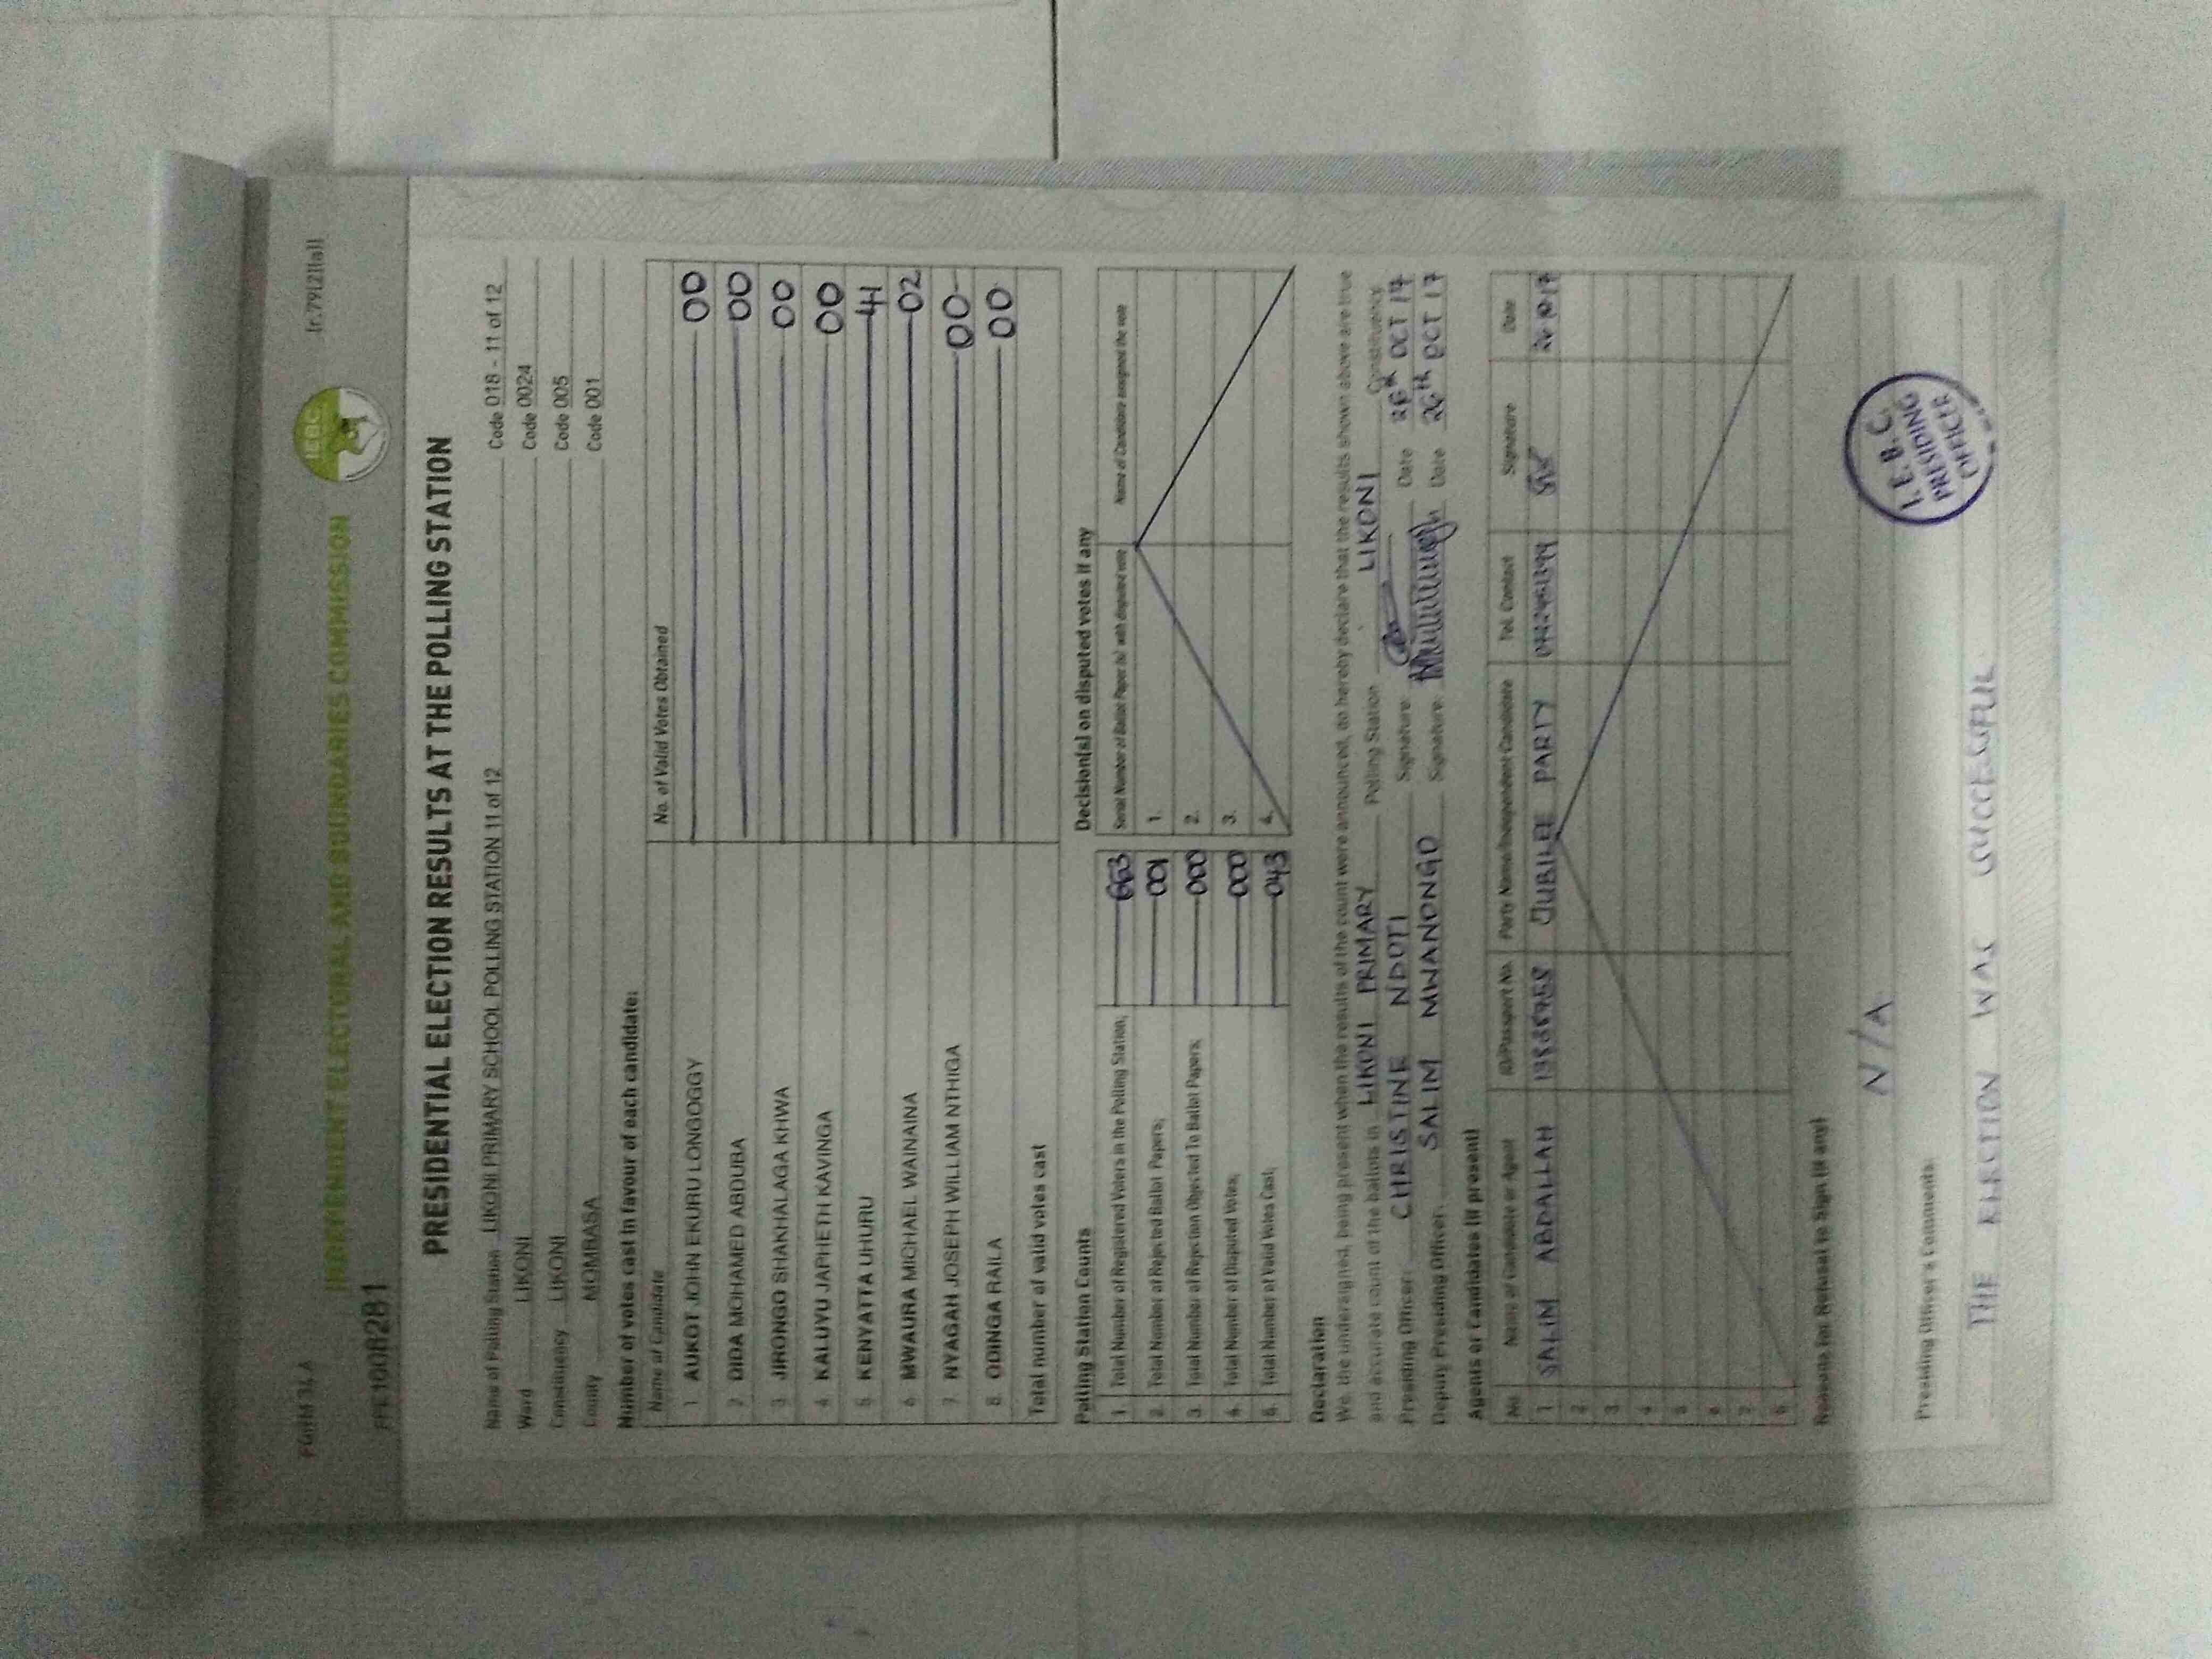 FORM 34A
(r.79(2)(a))
IEBC
INDEPENDENT ELECTORAL AND BOUNDARIES COMMISSION
PRESIDENTIAL ELECTION RESULTS AT THE POLLING STATION
Name of Polling Station LIKONI PRIMARY SCHOOL POLLING STATION 11 of 12 Code 018 - 11 of 12
Ward LIKONI Code 0024
Constituency LIKONI Code 005
County MOMBASA Code 001
Number of votes cast in favour of each candidate:
Name of Candidate No. of Valid Votes Obtained
1 AUKOT JOHN EKURU LONGOGGY 00
2 DIDA MOHAMED ABDUBA 00
3 JIRONGO SHAKHALAGA KHWA 00
4 KALUYU JAPHETH KAVINGA 00
5 KENYATTA UHURU 41
6 MWAURA MICHAEL WAINAINA 02
7 NYAGAH JOSEPH WILLIAM NTHIGA 00
8 ODINGA RAILA 00
Total number of valid votes cast
Polling Station Counts
1. Total Number of Registered Voters in the Polling Station;
2. Total Number of Rejected Ballot Papers; 001
3. Total Number of Rejection Objected To Ballot Papers; 000
4. Total Number of Disputed Votes; 000
5. Total Number of Valid Votes Cast; 043
Decision(s) on disputed votes if any
Serial Number of Ballot Paper (s) with disputed vote Name of Candidate assigned the vote
1.
2.
3.
4.
Declaration
We, the undersigned, being present when the results of the count were announced, do hereby declare that the results shown above are true
and accurate count of the ballots in LIKONI PRIMARY Polling Station LIKONI Constituency
Presiding Officer: CHRISTINE NDOTI Signature Date 26th OCT 17
Deputy Presiding Officer: SALIM MWANONGO Signature Date 26th OCT 17
Agents or Candidates (if present)
No. Name of Candidate or Agent ID/Passport No. Party Name/Independent Candidate Tel. Contact Signature Date
1 SALIM ABDALLAH JUBILEE PARTY
2
3
4
5
6
7
8
Reasons For Refusal to Sign (if any)
N/A
I.E.B.C.
PRESIDING
OFFICER
Presiding Officer's Comments:
THE ELECTION WAS SUCCESSFUL